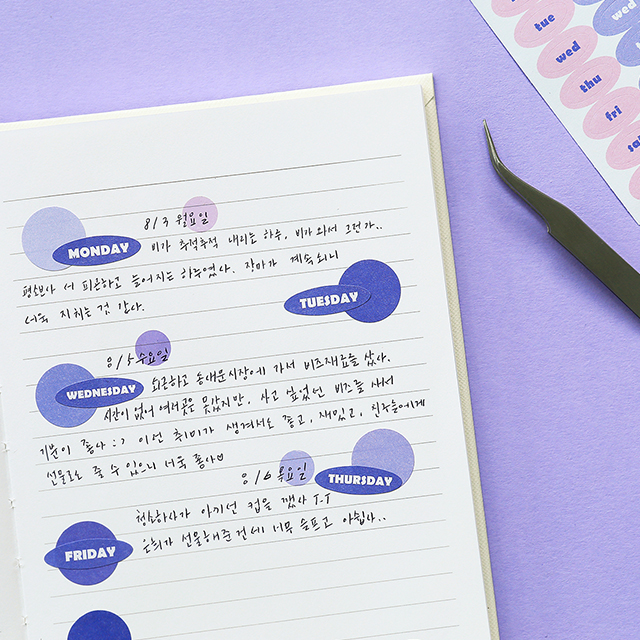 tue
wed
wed
thu
fri
8/3 월요일
MONDAY 비가 추적추적 내리는 하루, 비가 와서 그런가..
평소보다 더 피곤하고 늘어지는 하루였다. 장마가 계속되니
더욱 지치는 것 같다.
TUESDAY
8/5 수요일
WEDNESDAY 퇴근하고 동대문시장에 가서 비즈재료를 샀다.
시간이 없어 여러곳은 못갔지만, 사고 싶었던 비즈를 사서
기분이 좋다 :) 이런 취미가 생겨서도 좋고, 재밌고, 친구들에게
선물로도 줄 수 있으니 더욱 좋다♡
8/6 목요일
THURSDAY
청소하다가 아끼던 컵을 깼다 T-T
FRIDAY 선물해준건데 너무 슬프고 아쉽다..